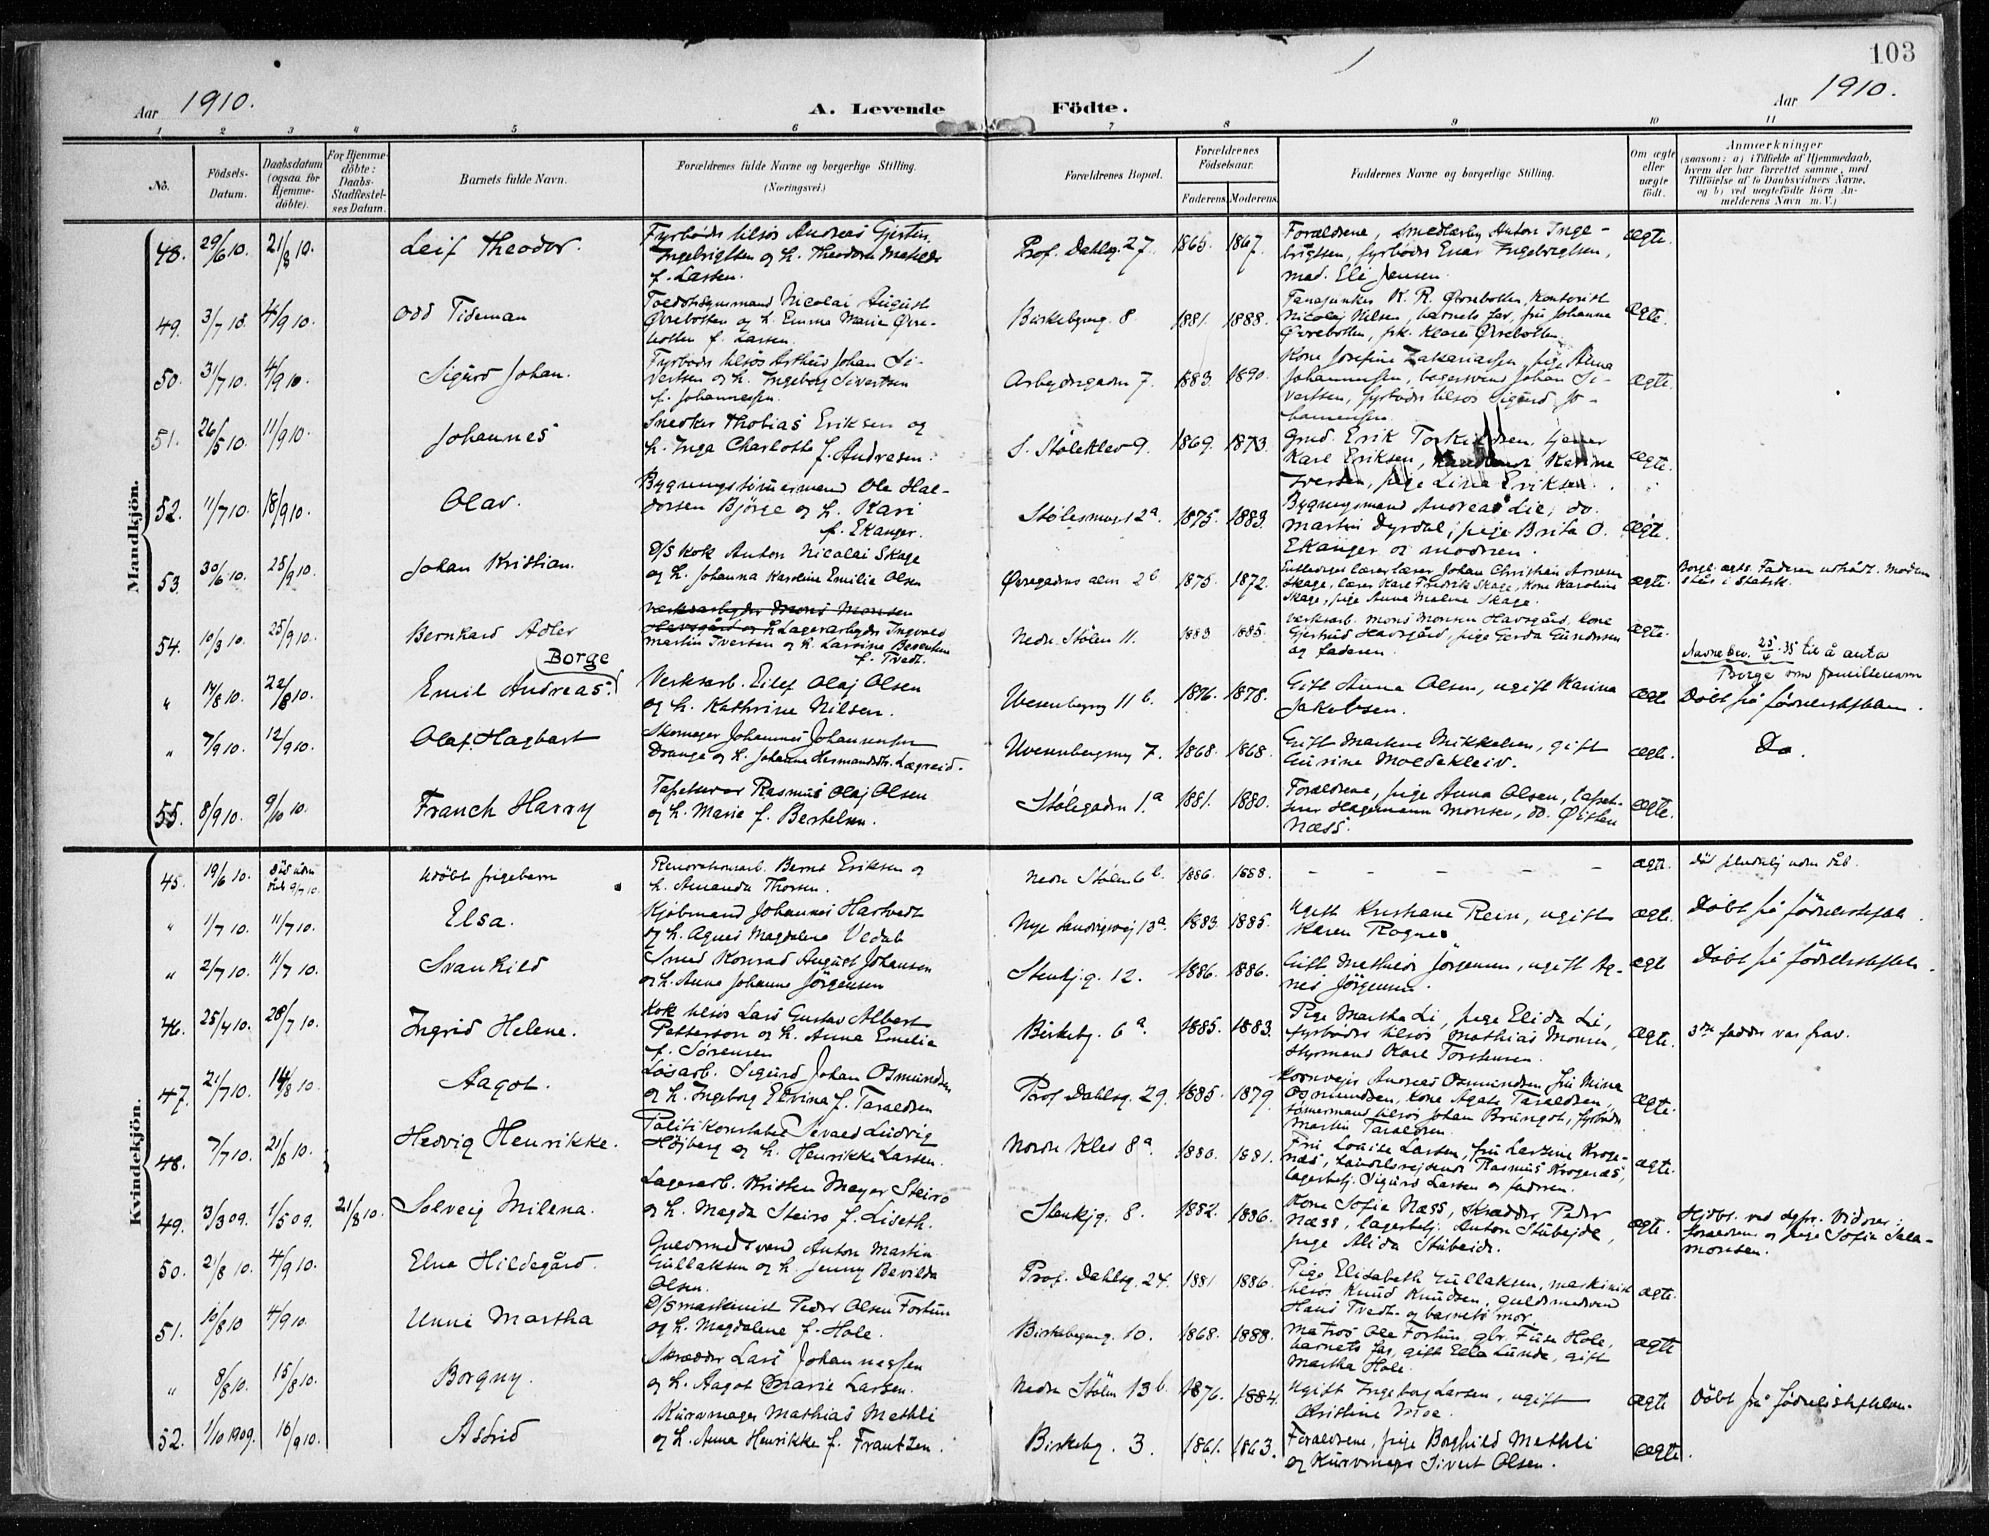 103
Aar 1910.
A. Levende Födte.
Aar 1910.
1 2 3 4 5 6 7 8 9 10 11
No.
Födsels-Datum.
Daabsdatum (ogsaa for Hjemme-döbte).
For Hjemme-döbte: Daabs-Stadfæstel-ses Datum.
Barnets fulde Navn.
Forældrenes fulde Navne og borgerlige Stilling. (Næringsvei.)
Forældrenes Bopæl.
Forældrenes Födselsaar.
Faderens. Moderens.
Faddernes Navne og borgerlige Stilling.
Om ægte eller uægte födt.
Anmærkninger
(saasom: a) i Tilfælde af Hjemmedaab, hvem der har forrettet samme, med Tilföielse af to Daabsvidners Navne, og b) ved uægtefödte Börn An-melderens Navn m. V.)
Mandkjön.
48. 29/6 10. 21/8 10. Leif Theodor.
Fyrbøder tilsjøs Andreas Gjertin
Ingebrigtsen og h. Theodora Matilde
f. Larsen.
Prof. Dahlsg. 27 1865. 1867.
Forældrene, smedlærling Anton Inge-
brigtsen, fyrbøder Einar Ingebrigtsen,
mad. Eli Jensen.
ægte.
49. 3/7 10. 4/9 10. Odd Tideman
Toldopsynsmand Nicolai August
Øvrebotten og h. Emma Marie Øvre-
botten f. Larsen.
Birkebgung. 8 1881. 1888.
K. R. Øvrebotten, Kontorist
Nicolaj Nilsen, barnets far, fru Johanna
Øvrebotten, frk. Klara Øvrebotten
ægte.
50. 31/7 10. 4/9 10. Sigurd Johan.
Fyrbøder tilsjøs Arthur Johan Si-
vertsen og h. Ingeborg Sivertsen
f. Johannessen.
Arbejdergaden 7. 1883. 1890.
Kone Josefine Zakariassen, pige Anna
Johannessen, bagersvend Johan Si-
vertsen, fyrbøder tilsjøs Sigurd Jo-
hannesen.
ægte.
51. 26/5 10. 11/9 10. Johannes
Snedker Thobias Eriksen og
h. Inga Charlotte f. Andresen.
S. Støleklev 9. 1869. 1873.
Gmd. Erik Torkildsen, tjener
Karl Eriksen, Karine
Iversen, pige Lina Eriksen.
ægte.
52. 11/7 10. 18/9 10. Olav.
Bygningstömmermand Ole Hal-
dorsen Björge og h. Kari
f. Ekanger.
Stølesmuget 2a. 1875. 1883.
Bygningsmand Andreas Lie, do.
Martin Dyrdal, pige Brita O.
Ekanger og modren.
ægte.
53. 30/6 10. 25/9 10. Johan Kristian.
D/S kok Anton Nicolai Skage
og h. Johanna Karoline Emilie Olsen
Øvregadens alm. 2b 1875. 1872.
lærer Johan Christian Arnesen
Skage, lærer Karl Fredrik Skage, kone Karoline
Skage, pige Anna Malene Skage.
ægte.
Borgl. ægts. Faderen udtrådt. Moderen
står i Statsk.
54. 10/3 10. 25/9 10. Bernhard Adler
Verksarbejder Mons Monsen
Havsgård og h. Lagerarbejder Ingvald
Martin Iversen og h. Larsine Berentsen
f. Tvedt.
Nedre Stølen 11. 1883 1885.
Verksarb. Mons Monsen Havsgård, kone
Gjertrud Havsgård, pige Gerda Gundersen
og faderen.
ægte.
Borge
Navnebev. 25/4 35 til å anta
Borge som familienavn
" 14/8 10. 22/8 10. Emil Andreas.
Verksarb. Eilef Olaj Olsen
og h. Kathrine Nilsen.
Uresenbegung 11 b. 1876. 1878.
Gift Anna Olsen, ugift Karina
Jakobsen.
ægte
Døbt på fødselsstiftelsen.
" 7/9 10. 12/9 10. Olaf Hagbart
Skomager Johannes Johannessen
Drange og h. Johanne Hermandsdtr. Lægreid.
7. 1868. 1868.
Gift Martine Mikkelsen, gift
Gurine Moldekleiv.
ægte.
Do.
55. 8/9 10. 9/10 10. Franch Harry
Tapetserer Rasmus Olaj Olsen
og h. Marie f. Bertelsen.
Stølegaden 1a 1881. 1880.
Forældrene, pige Anna Olsen, tapet-
serer Hagemann Monsen, do. Øisten
Næss.
ægte.
Kvindekjön.
45. 19/6 10. Død uden dåb 9/7 10. Udöbt pigebarn
Renovationsarb. Bernt Eriksen og
h. Amanda Thorsen.
Nedre Stølen 6 b. 1886. 1888.
- - - - -
ægte.
Död uden dåb.
" 1/7 10. 11/7 10. Elsa.
Kjøbmand Johannes Hartvedt
og h. Agnes Magdalene Vedeb
Nye Sandvigsvej 13a. 1883. 1885.
Ugift Kristiane Rein, ugift
Karen Rogne.
ægte.
Døbt på fødselsstiftelsen.
" 2/7 10. 11/7 10. Svanhild
Smed Konrad August Johansen
og h. Anna Johanne Jörgensen
Stenkjg. 12. 1886. 1886.
Gift Mathilde Jörgensen, ugift Ag-
nes Jörgensen.
ægte
Døbt på fødselsstiftelsen.
46. 25/4 10. 28/7 10. Ingrid Helene.
Kok tilsjøs Lars Gustav Albert
Petterson og h. Anna Emelie
f. Sörensen
Birkebg. 6a. 1885. 1883.
Pige Martha Li, pige Elida Li,
fyrbøder tilsjøs Mathias Monsen,
styrmand Karl Torstensen.
ægte.
3die fadder var frav.
47. 21/7 10. 14/8 10. Aagot.
Løsarb. Sigurd Johan Osmundsen
og h. Ingeborg Elvina f. Taraldsen
Prof Dahlsg. 29. 1885. 1879.
Kornvejer Andreas Osmundsen, fru Mina
Osmundsen, kone Agate Taraldsen,
tömmermand tilsjøs Johan Brüngot, fyrbøder
Martin Taraldsen.
ægte.
48. 7/7 10. 21/8 10. Hedvig Henrikke.
Politikonstabel Sevald Ludvig
Höjberg og h. Henrikke Larsen.
Nordre Klev 8a. 1880. 1881.
Fru Louise Larsen, fru Larzine Kroge-
næs, handelsrejsende Rasmus Krogenæs,
lagerbetj. Sigurd Larsen og fadren.
ægte.
49. 3/3 09. 1/5 09. 21/8 10. Solveig Milena.
Lagerarb. Kristen Meyer Steiro
og h. Magda Steiro f. Liseth.
Stenkjg. 8. 1882. 1886.
Kone Sofie Næss, skrædder Peder
Næss, lagerbetj. Anton Stübejde,
pige Alida Stübeide.
ægte.
Hjdbt. ved dgpr. Vidner:
forældrene og pige Sofie Salo-
monsen.
50. 2/8 10. 4/9 10. Elna Hildegård.
Guldsmedsvend Anton Martin
Gullaksen og h. Jenny Bevilda
Olsen.
Prof. Dahlsg. 24. 1881 1886.
Pige Elisabeth Gullaksen, maskinist
tilsjøs Knud Knudsen, guldsmedsvend
Hans Tvedt og barnets mor.
ægte.
51. 10/8 10 4/9 10. Unni Martha
D/S maskinist Peder Olsen Fortun
og h. Magdalene f. Hole.
Birkebgung. 10. 1868. 1888.
Matros Ole Fortun, gbr. Fuse Hole,
barnets far, gift Ella Lunde, gift
Martha Hole.
ægte
" 8/8 10. 15/8 10. Borgny.
Skrædder Lars Johannessen
og h. Aagot Marie Larsen.
Nedre Stølen 13 b. 1876. 1884.
Ugift Ingeborg Larsen, ugift
Kristine
ægte
Döbt på fødselsstiftelsen.
52. 1/10 1909. 18/9 10. Astrid
Kurvmager Mathias Methli
og h. Anna Henrikke f. Frantzen.
Birkebg. 3. 1861. 1863.
Forældrene, pige Borghild Methli
og Kurvmager Sivert Olsen.
ægte.